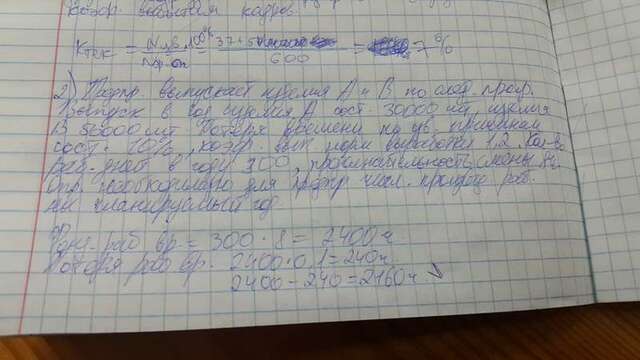 Коэф. кадров
Ктек = Nув. 100% / Nср. сп = 37+5 / 600 = 7%
2) Предпр. выпускает изделия А и В по след. прогр.
Выпуск в год изделия А сост. 30000 шт, изделия
В 50000 шт. Потеря времени по ув. причинам
сост. 10%, коэф. вып норм выработки 1,2. Кол-во
раб. дней в году 300, продолжительность смены 8ч.
Опр. необходимую для предпр числ. раб.
на планируемый год.
раб вр. = 300 · 8 = 2400ч.
Потеря раб вр. 2400·0,1=240ч
2400-240=2160ч.